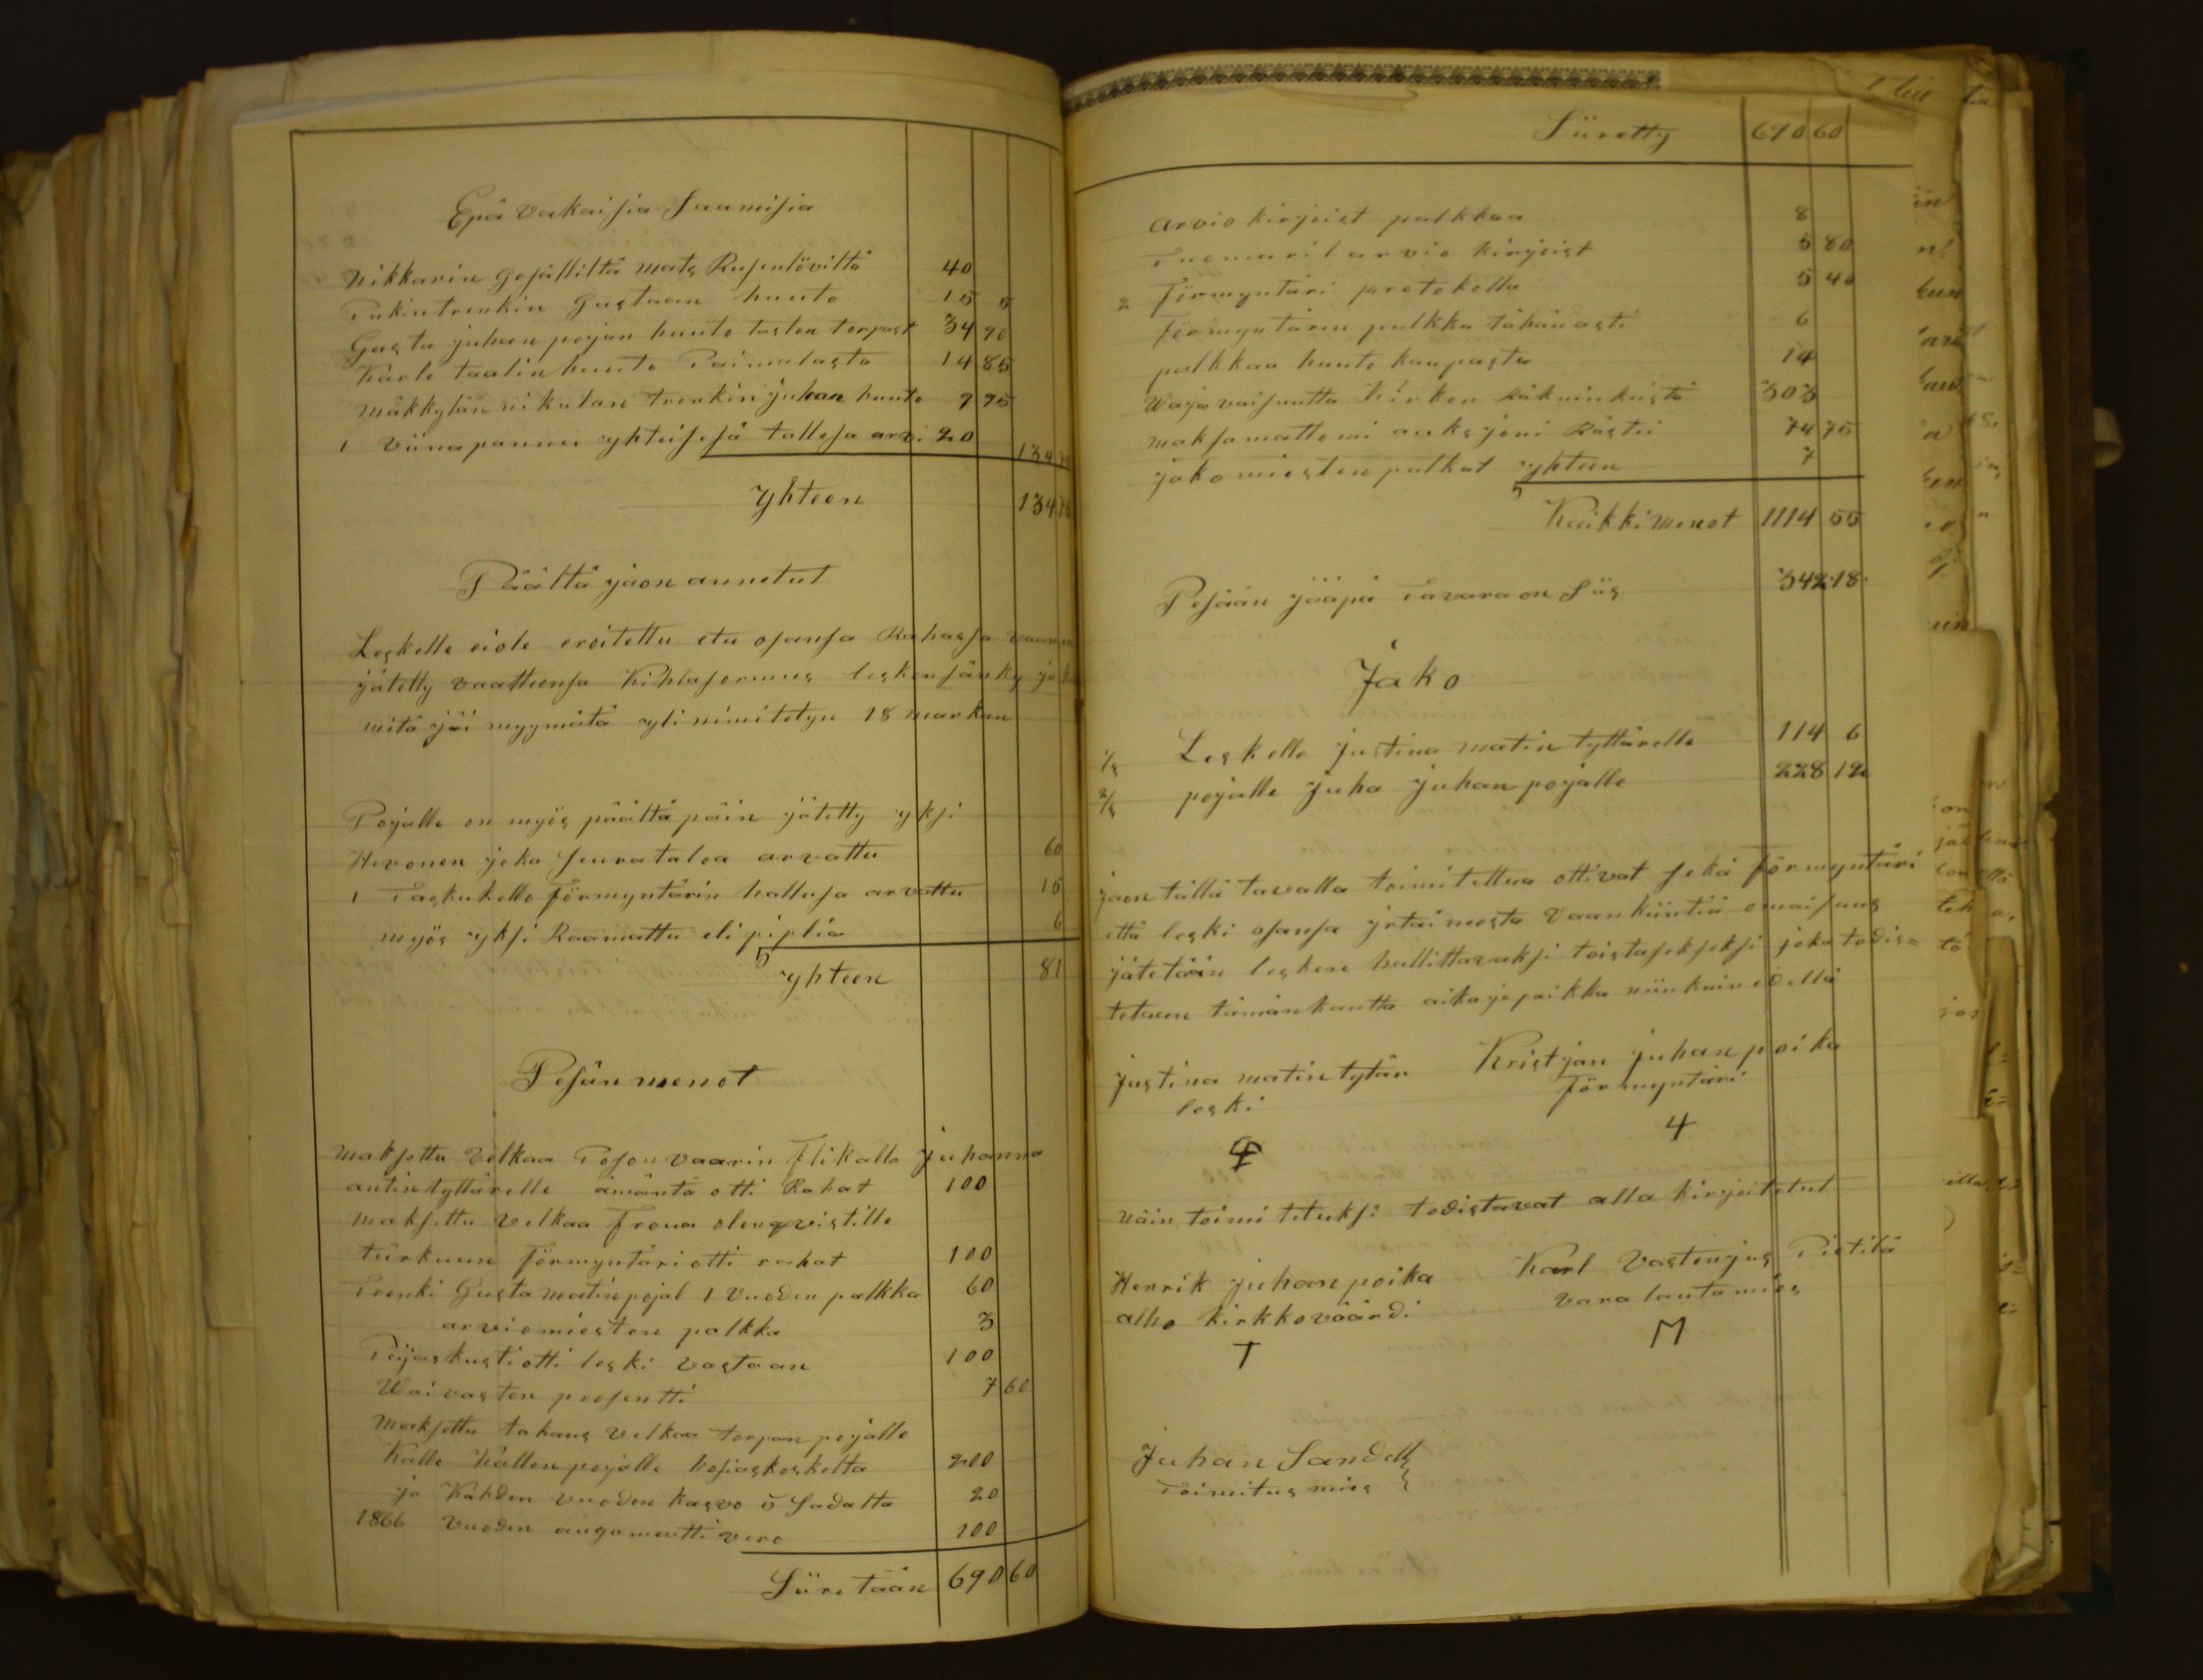 Epä vakaisia Saamisia
Nikkarin Gesälliltä Mats Rusenlöviltä 40
Pakintrenkin Gustaan huuto 15 5
Gusta juhan pojan huuto tasten torpast 34 90
Karle taalin huuto Paimalasta 14 85
Mäkkylän nikulan trenkin juhan huuto 9 95
1 Viinapannu yhteisesä tallesa arvi 20 134
Yhteen 134
Päältä jaon annetut
Leskelle eiole eroitettu etu osansa Rahassa vaan
jätetty vaatteensa Kihlasormus leskensänky ja
mitä jäi myymätä yli nimitetyn 18 markan
Pojalle on myös päältä päin jätetty yksi
Hevonen joka seura taloa arvattu 60
1 Taskukello förmyntärin hallusa arvattu 15
myös yksi Raamattu eli piplia 6
yhteen 81
Pesän menot
Maksettu Velkaa Flikalle Juhanna
antin tyttärelle ämäntä otti Rahat 100
Maksettu Velkaa Froua olenqvistille
turkuun förmyntäri otti rahat 100
Trenki Gusta Matinpojal 1 Vuoden palkka 60
arviomiesten palkka 3
Peijaskusti otti leski Vastaan 100
Waivasten prosentti 7 60
Maksettu takaus Velkaa torpan pojalle
Kalle Kallenpojalle 200
ja Kahden vuoden kasvo 5 Sadalta 20
1866 Vuoden augumentti vero 100
Siiretään 690 60
Siiretty 690 60
arvio kirjoist palkkaa 8
Tuomaril arvio kirjoist 5 80
2 Förmyntäri protokolla 5 40
förmyntärin palkka tähänasti 6
palkkaa huuto kaupasta 14
Waja vaisuutta Kirkon Räkninkistä 303
maksamattomi auksjoni Rästii 74 75
jako miesten palkat yhteen 7
Kaikki Menot 1114 55
Pesään jääpä Tavara on Siis 342 18
Jako
1/3 Leskelle Justina matin tyttärelle 114 6
2/3 pojalle Juha Juhan pojalle 228 12
jaon tällä tavalla toimitettua ottivat sekä Förmyntäri
että leski osansa irtaimesta Vaan kiintiä omaisuus
jätetään lesken hallittavaksi toistaseksi joka todis=
tetaan tämän kautta aika ja paikka niinkuin edellä
Justina matin tytär Kristjan Juhan poika
leski Förmyntäri
4
näin toimitetuksi todistavat alla kirjoitetut
Henrik Juhanpoika Karl Vastenjus Pietilä
alho kirkkoväärdi vara lautamies
T M
Juhan Sandell
Toimitus mies